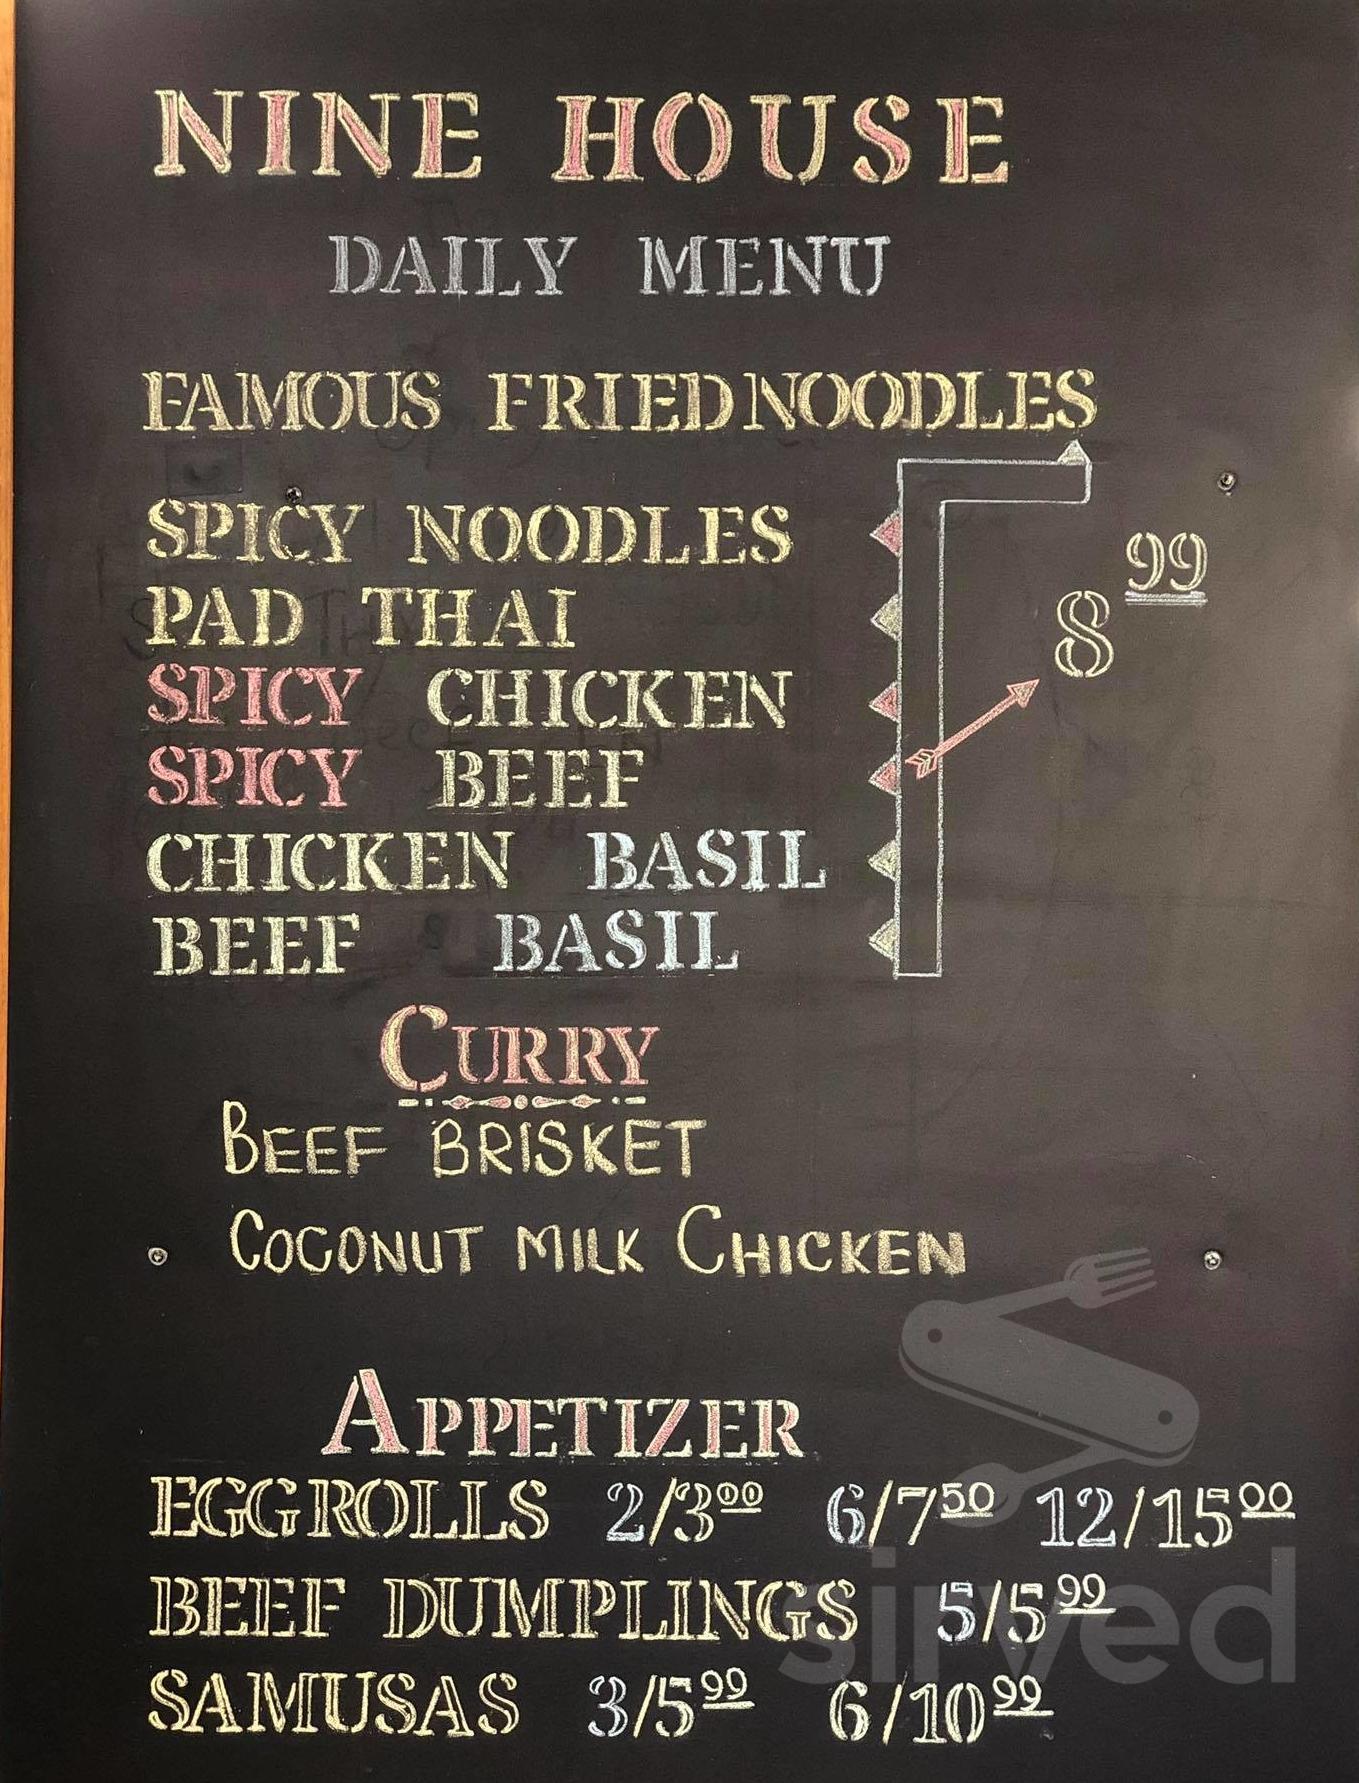 NINE HOUSE
DAILY MENU
FAMOUS FRIED NOODLES
SPICY NOODLES
PAD THAI
8 99
SPICY CHICKEN
SPICY BEEF
CHICKEN BASIL
BEEF BASIL
CURRY
BEEF BRISKET
COCONUT MILK CHICKEN
APPETIZER
EGG ROLLS 2/3 00 6/7 50 12/15 00
BEEF DUMPLINGS 5/5 99
SAMUSAS 3/5 99 6/10 99
sirved